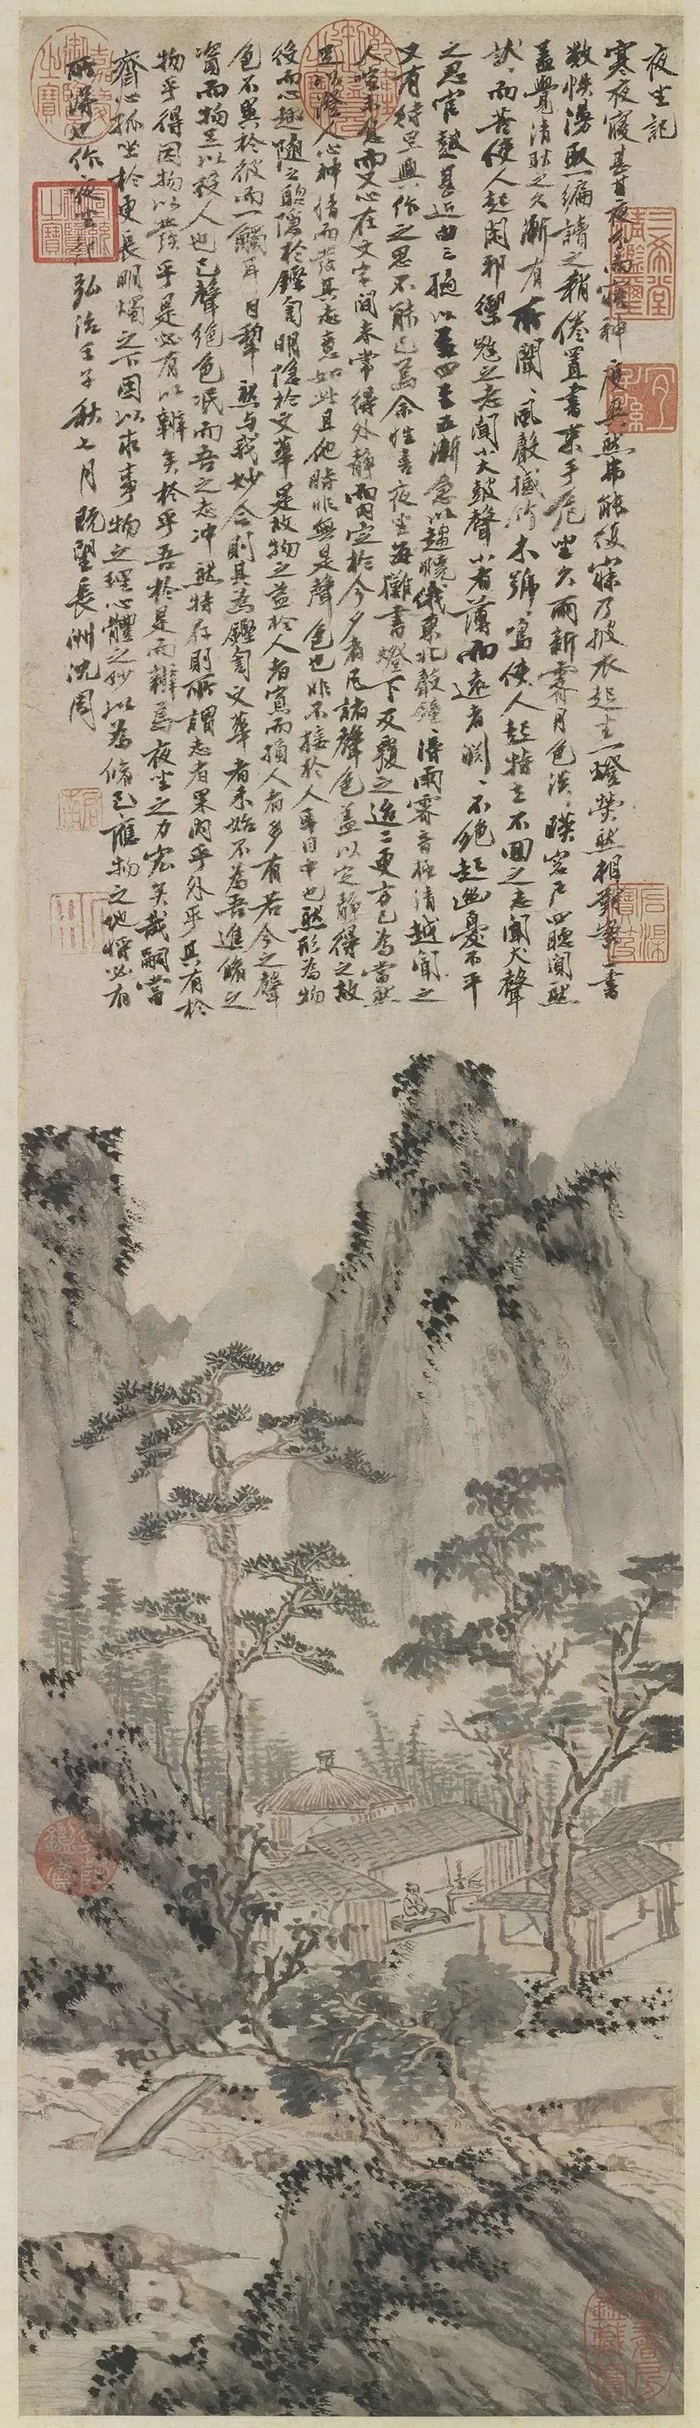 夜坐記
寒夜寢甚甘夜分而寤神度爽然弗能復寐乃披衣起坐一燈熒然相對案上書
數帙漫取一編讀之稍倦置書束手危坐久雨新霽月色淡〻映窗戶四聽闃然
蓋覺清耿之久漸有所聞〻風聲撼竹木號〻鳴使人起特立不回之志聞犬聲
狀〻而苦使人起閑邪禦寇之志聞小大鼓聲小者薄而遠者淵〻不絕起幽憂不平
之思官鼓甚近由三撾以至四至五漸急以趨曉俄東北聲鐘〻得雨霽音極清越聞之
又有待旦興作之思不能已焉余性喜夜坐每攤書燈下反覆之迨二更方已為當然
人喧未息而又心在文字間未常得外靜而內定於今夕者凡諸聲色蓋以定靜得之故
足以澄人心神情而發其志意如此且他時非無是聲色也非不接於人耳目中也然形為物
役而心趣隨之聰隱於鏗訇明隱於文華是故物之益於人者寡而損人者多有若今之聲
色不異於彼而一觸耳目犁然與我妙合則其為鏗訇文華者未始不為吾進脩之
資而物足以役人也已聲絕色泯而吾之志沖然特存則所謂志者果內乎外乎其有於
物乎得因物以發乎是必有以辨矣於乎吾於是而辨焉夜坐之力宏矣哉嗣當
齋心孤坐於更長明燭之下因以求事物之理心體之妙以為脩己應物之地將必有
所得也作夜坐記弘治壬子秋七月既望長洲沈周
三希堂精鑑璽
宜子孫